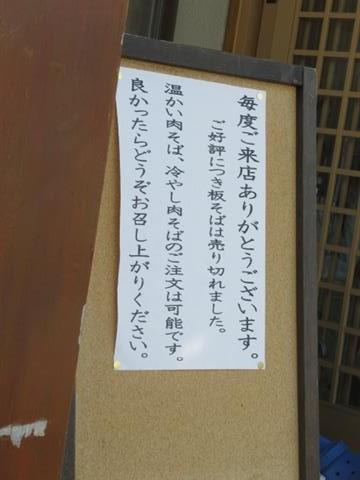 毎度ご来店ありがとうございます。
ご好評につき板そばは売り切れました。
温かい肉そば、冷やし肉そばのご注文は可能です。
良かったらどうぞお召し上がりください。